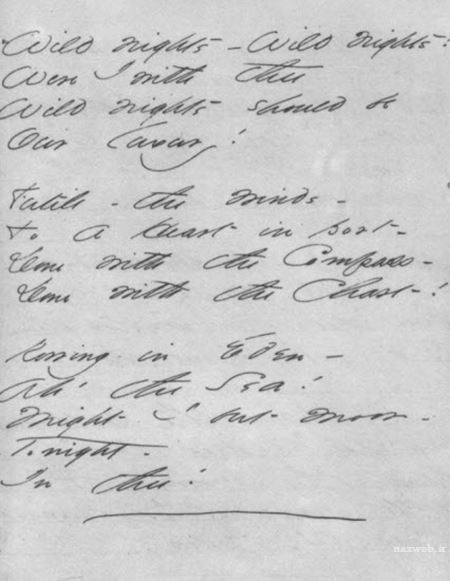 Wild nights - Wild nights!
Were I with thee
Wild nights should be
Our luxury!
Futile - the winds -
To a Heart in port -
Done with the Compass -
Done with the Chart!
Rowing in Eden -
Ah! the Sea!
Might I but moor -
Tonight -
In thee!
nazweb.ir